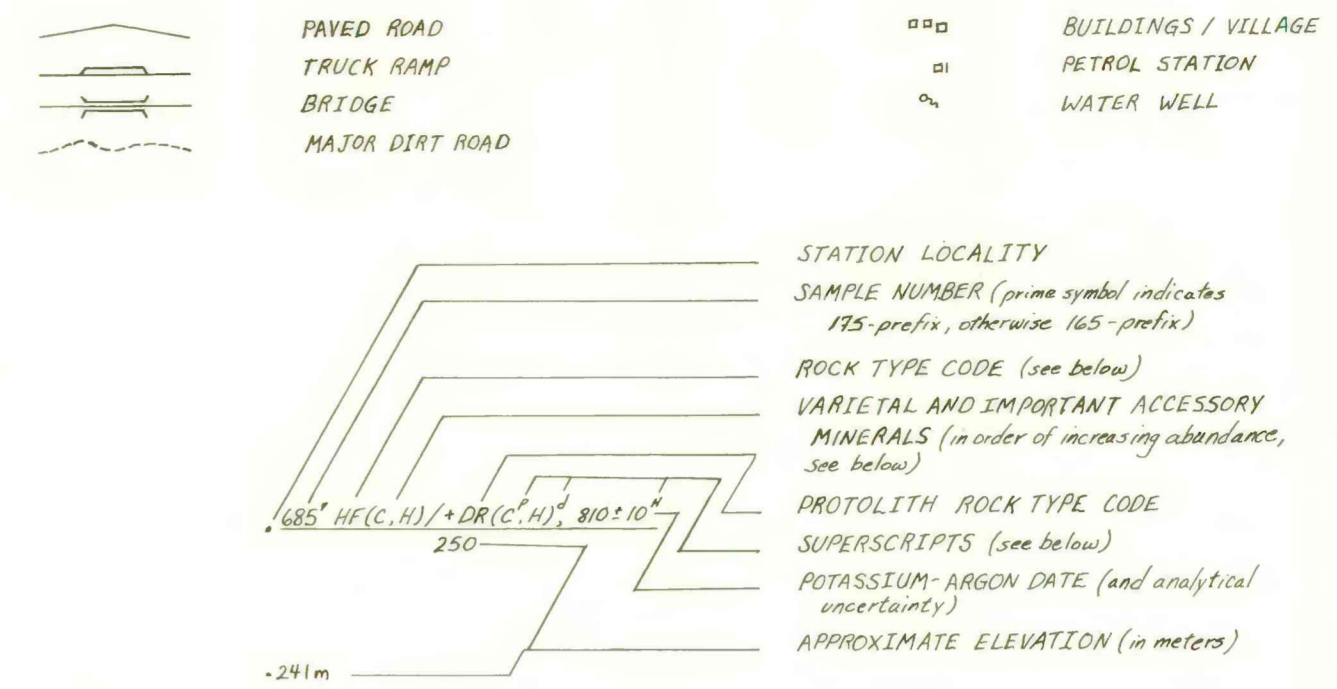 PAVED ROAD
TRUCK RAMP
BRIDGE
MAJOR DIRT ROAD
BUILDINGS / VILLAGE
PETROL STATION
WATER WELL
STATION LOCALITY
SAMPLE NUMBER (prime symbol indicates
175-prefix, otherwise 165-prefix)
ROCK TYPE CODE (see below)
VARIETAL AND IMPORTANT ACCESSORY
MINERALS (in order of increasing abundance,
see below)
PROTOLITH ROCK TYPE CODE
SUPERSCRIPTS (see below)
POTASSIUM-ARGON DATE (and analytical
uncertainty)
APPROXIMATE ELEVATION (in meters)
685' HF(C,H)/+DR(Cᴾ,H)ᵈ, 810±10ᴴ
250
.241m